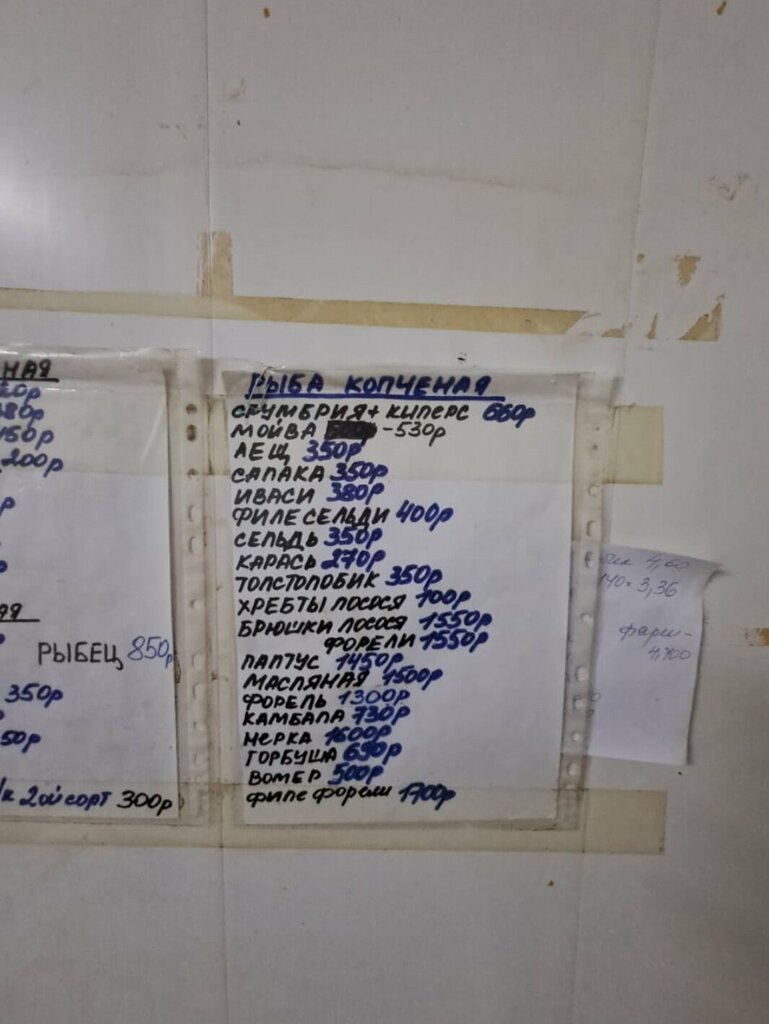 НАЯ
20р
380р
450р
200р
р
АЯ
РЫБЕЦ 850р
350р
50р
/к 2ой сорт 300р
РЫБА КОПЧЕНАЯ
СКУМБРИЯ + КИПЕРС 660р
МОЙВА -530р
ЛЕЩ 350р
САПАКА 350р
ИВАСИ 380р
ФИЛЕ СЕЛЬДИ 400р
СЕЛЬДЬ 350р
КАРАСЬ 270р
ТОЛСТОЛОБИК 350р
ХРЕБТЫ ЛОСОСЯ 100р
БРЮШКИ ЛОСОСЯ 1550р
ФОРЕЛИ 1550р
ПАЛТУС 1450р
МАСЛЯНАЯ 1500р
ФОРЕЛЬ 1300р
КАМБАЛА 730р
НЕРКА 1600р
ГОРБУША 690р
ВОМЕР 500р
филе форели 1700р
4,60
140 = 3,36
фарш -
4,400